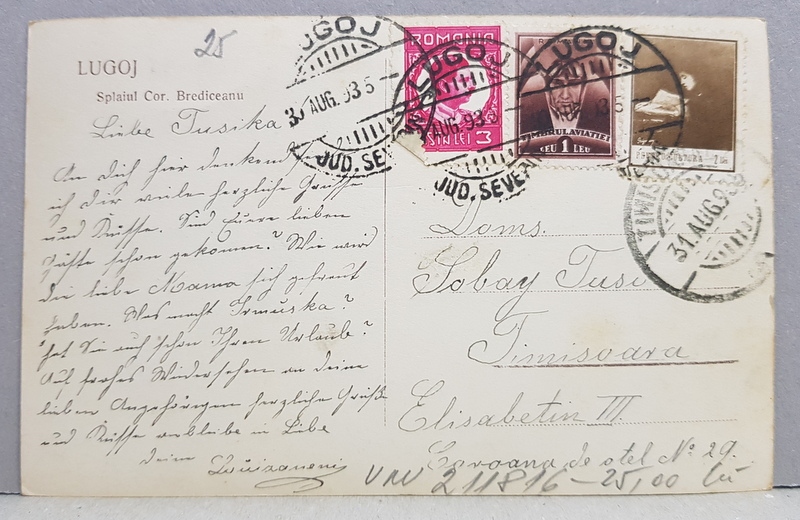 25
LUGOJ
Splaiul Cor. Brediceanu
LUGOJ
30 AUG. 935
JUD. SEVE
ROMANIA
3 LEI 3
LUGOJ
AUG. 935
JUD. SEVERIN
TIMBRUL AVIATIEI
LEU 1 LEU
LUGOJ
TIMISOARA
31 AUG. 93
Liebe Tusika
An dich hier denkend
ich dir viele herzliche Grüsse
und Küsse. Sind Euere lieben
Gäste schon gekommen? Wie wird
die liebe Mama sich gefreut
haben. Was macht Irmuska?
hat Sie auch schon Ihren Urlaub?
Auf frohes Wiedersehen an deine
lieben Angehörigen herzliche Grüße
und Küsse verbleibe in Liebe
deine
Doms.
Sobay Tusi
Timisoara
Elisabetin III
Coroana de otel No 29.
VNV 211816-25,00 lei